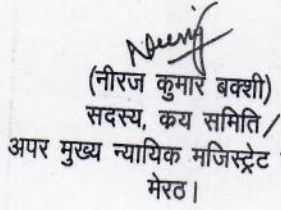 (नीरज कुमार बक्शी)
सदस्य, कय समिति/
अपर मुख्य न्यायिक मजिस्ट्रेट
मेरठ।